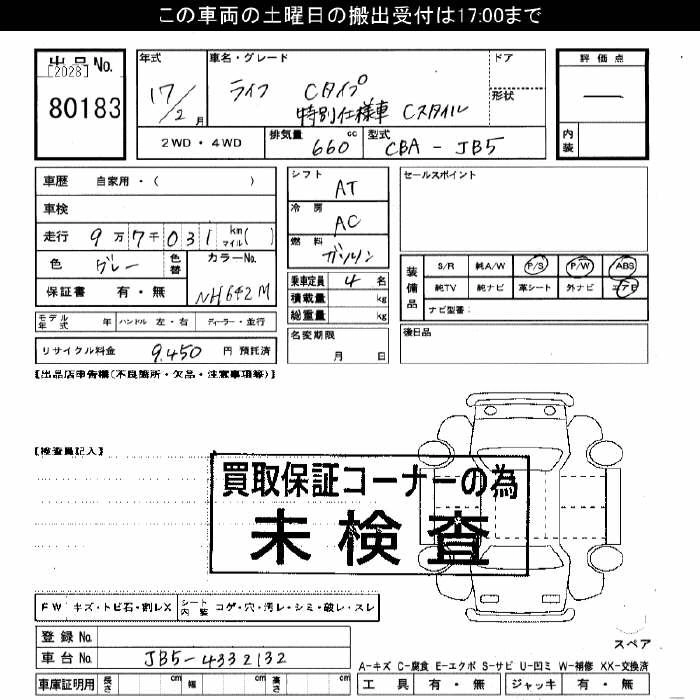 この車両の土曜日の搬出受付は17:00まで
出品No.
[2028]
80183
年式
17/2月
車名・グレード
ライフ Cタイプ
特別仕様車 Cスタイル
ドア
形状
評価点
—
内装
2WD・4WD
排気量 660 cc
型式 CBA-JB5
車歴 自家用・( )
車検
走行 9万7千031 km マイル( )
色 グレー
色替
カラーNo. NH642M
保証書 有・無
シフト AT
冷房 AC
燃料 ガソリン
乗車定員 4 名
積載量 kg
総重量 kg
セールスポイント
装備品
S/R 純A/W P/S P/W ABS
純TV 純ナビ 革シート 外ナビ エアB
ナビ型番:
モデル年式 年 ハンドル 左・右 ディーラー・並行
名変期限 月 日
後日品
リサイクル料金 9,450 円 預託済
【出品店申告欄(不良箇所・欠品・注意事項等)】
【検査員記入】
買取保証コーナーの為
未検査
FW キズ・トビ石・割レX
シート内装 コゲ・穴・汚レ・シミ・破レ・スレ
スペア
登録No.
車台No. JB5-4332132
A-キズ C-腐食 E-エクボ S-サビ U-凹ミ W-補修 XX-交換済
車庫証明用 長さ cm 幅 cm 高さ cm
工具 有・無 ジャッキ 有・無